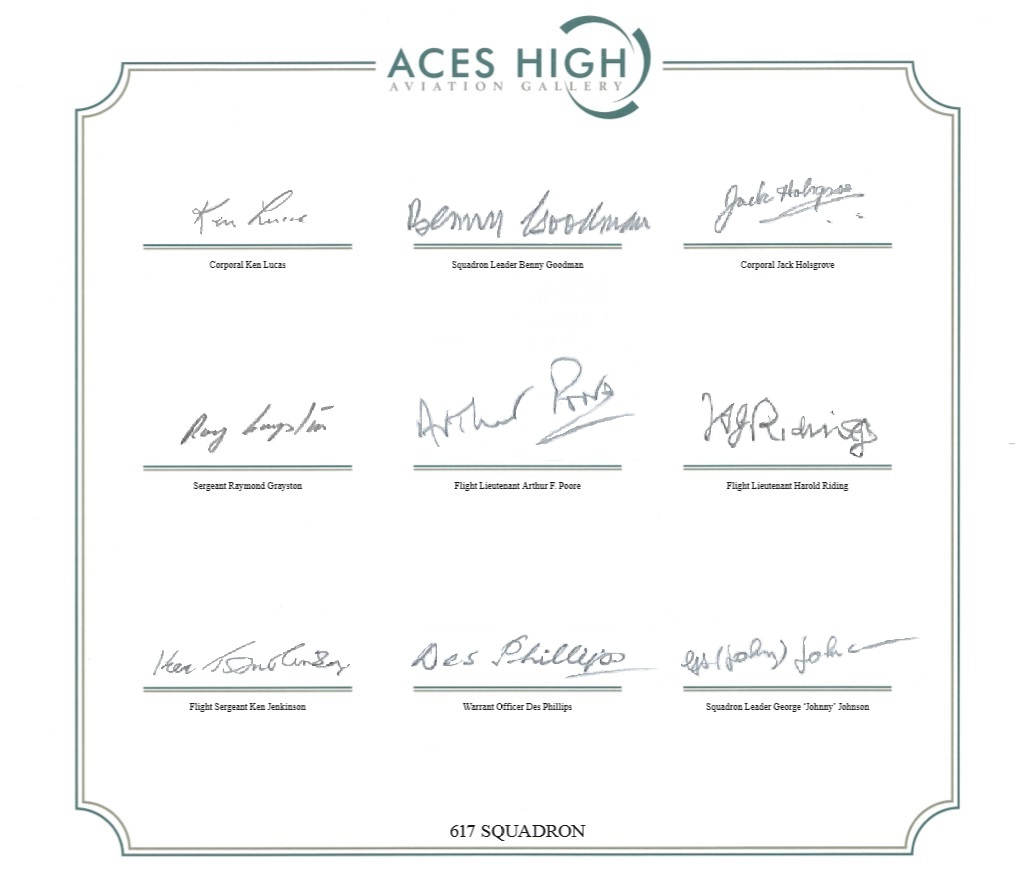 ACES HIGH
AVIATION GALLERY
Ken Lucas
Benny Goodman
Jack Holsgrove
Corporal Ken Lucas
Squadron Leader Benny Goodman
Corporal Jack Holsgrove
Ray Grayston
Arthur Poore
HJRidings
Sergeant Raymond Grayston
Flight Lieutenant Arthur F. Poore
Flight Lieutenant Harold Riding
Ken
Des Phillips
(Johnny) Johnson
Flight Sergeant Ken Jenkinson
Warrant Officer Des Phillips
Squadron Leader George "Johnny" Johnson
617 SQUADRON